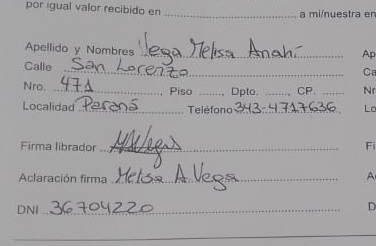 por igual valor recibido en ........................ a mi/nuestra en
Apellido y Nombres Vega Melisa Anahí Ap
Calle San Lorenzo Ca
Nro. 471 Piso ........ Dpto. ........, CP. ........ Nr
Localidad Paraná Teléfono 343-4717636 Lo
Firma librador MAVegas Fi
Aclaración firma Melisa A Vega A
DNI 36704220 D